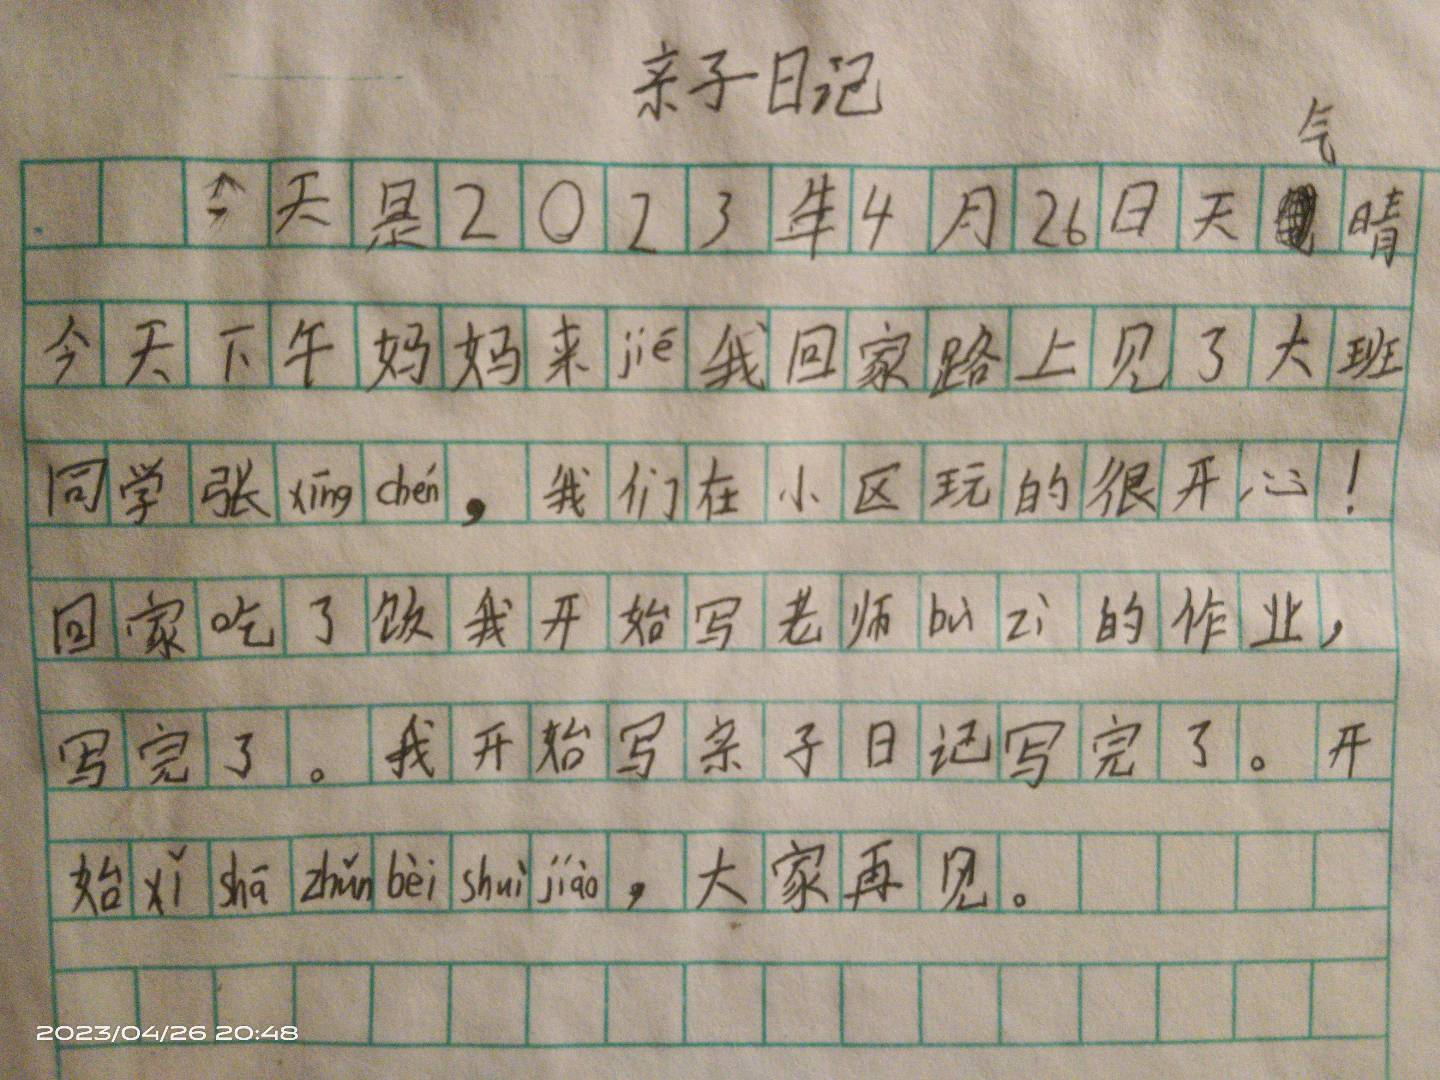 亲子日记
气
今天是2023年4月26日天晴
今天下午妈妈来jiē我回家路上见了大班
同学张xīngchén，我们在小区玩的很开心！
回家吃了饭我开始写老师bùzì的作业，
写完了。我开始写亲子日记写完了。开
始xǐshāzhǔnbèishuìjiào，大家再见。
2023/04/26 20:48